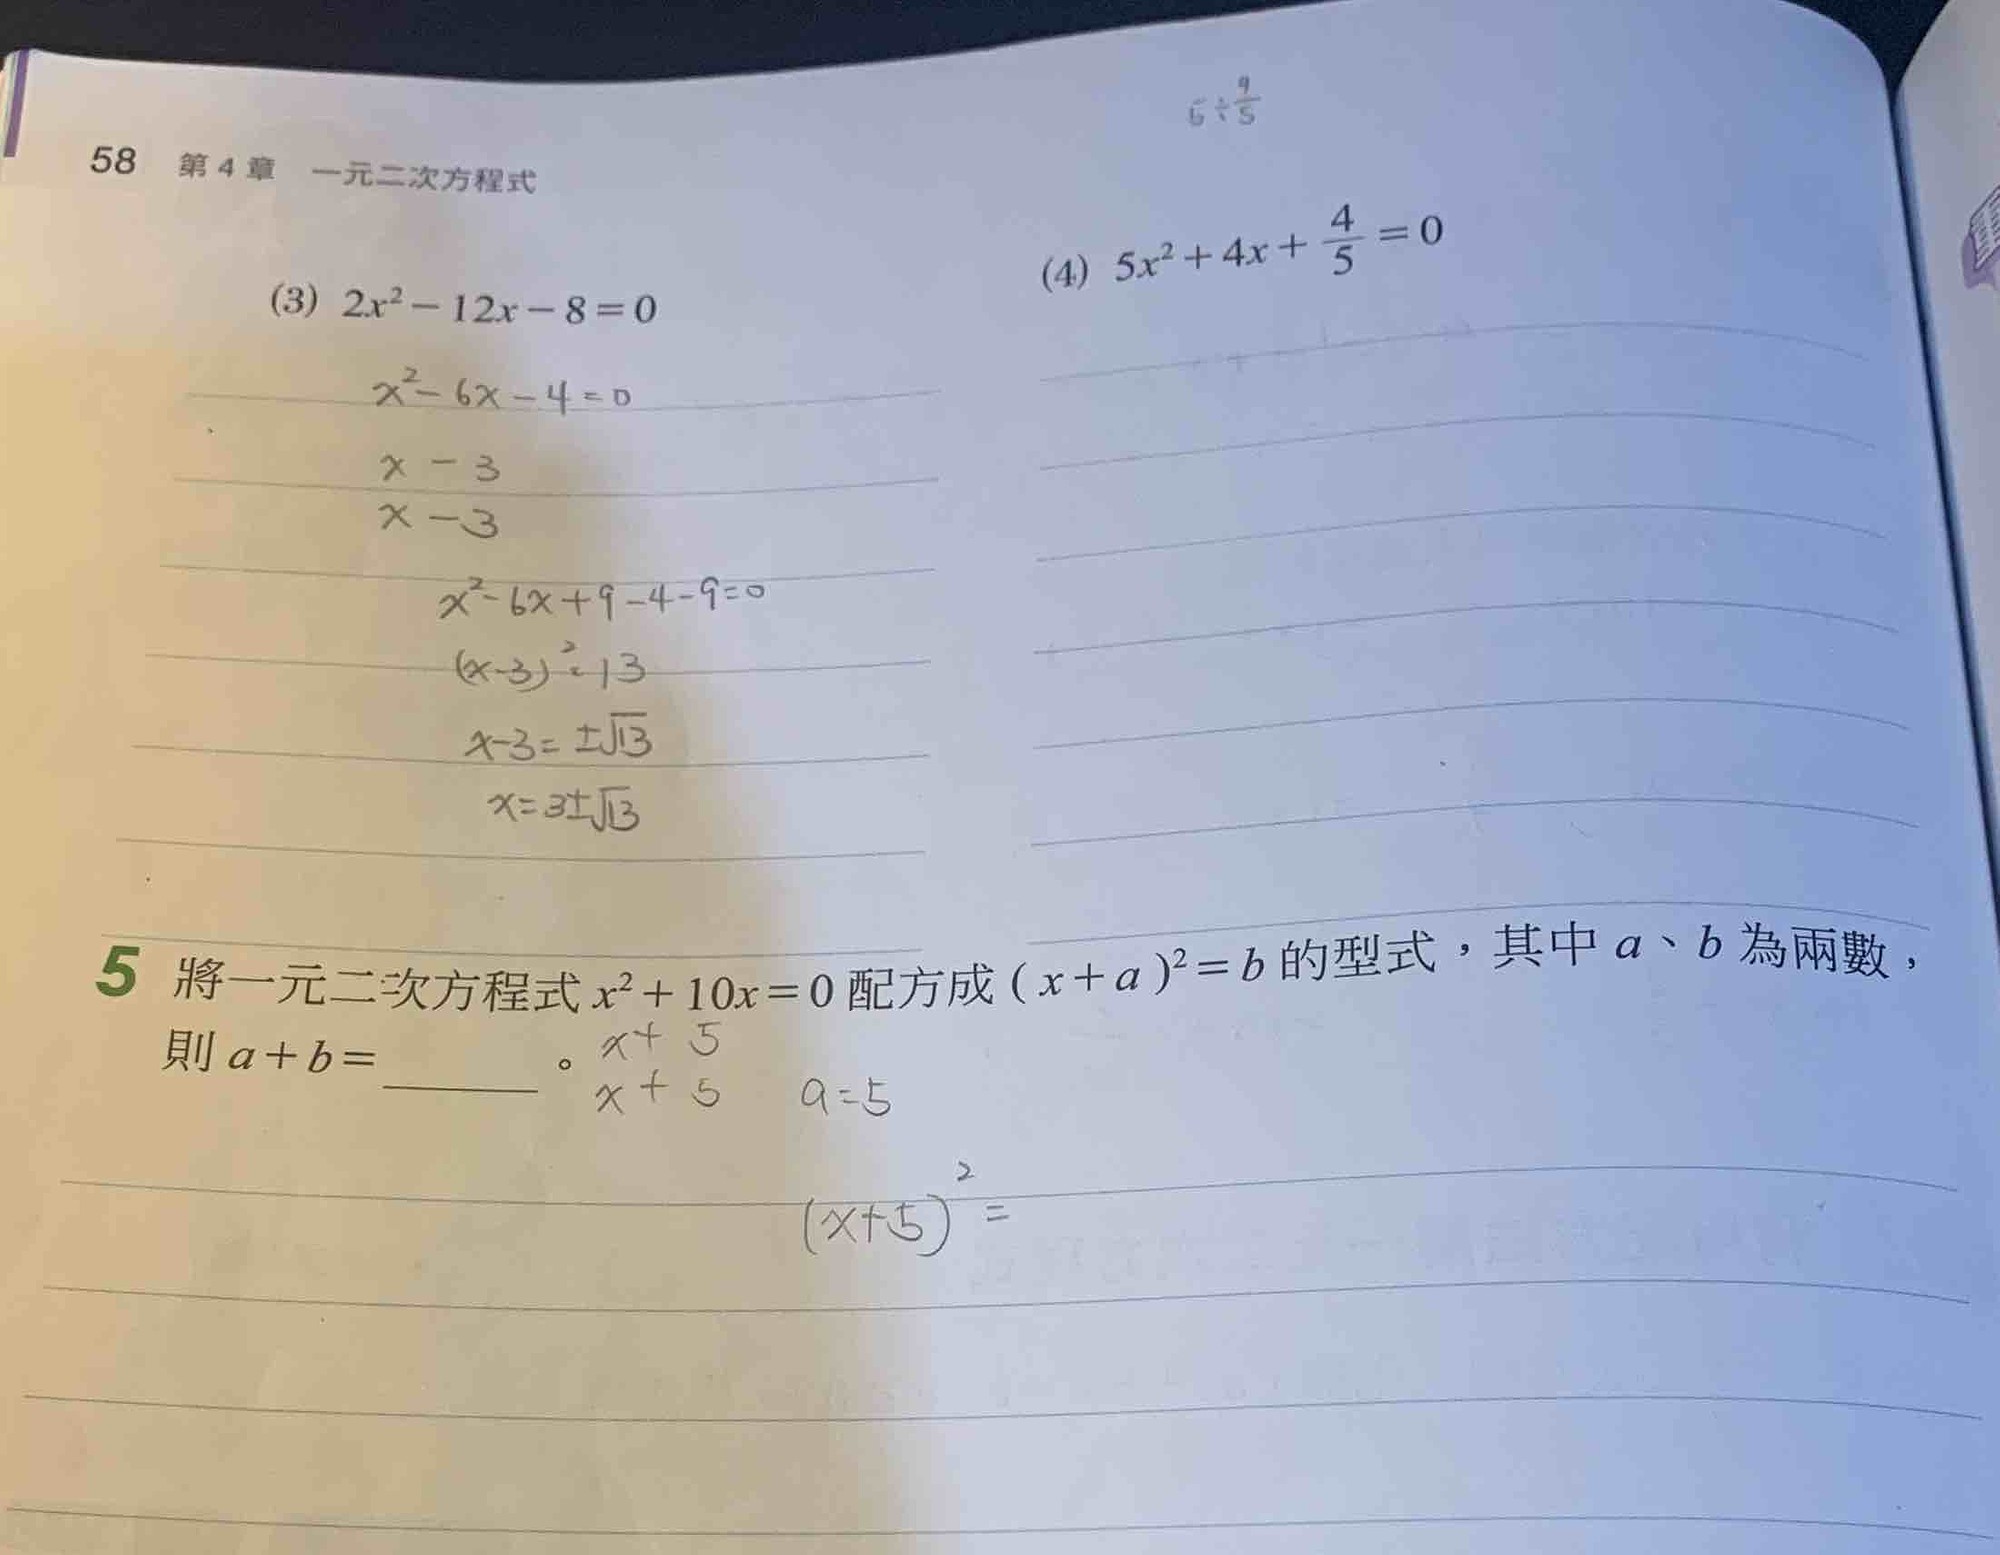 5÷9/5
58 第4章 一元二次方程式
(3) 2x²－12x－8＝0
x²－6x－4＝0
x－3
x－3
x²－6x＋9－4－9＝0
(x－3)²＝13
x－3＝±√13
x＝3±√13
(4) 5x²＋4x＋4/5＝0
5 將一元二次方程式 x²＋10x＝0 配方成 (x＋a)²＝b 的型式，其中 a、b 為兩數，
則 a＋b＝______。
x＋5
x＋5 a＝5
(x＋5)²＝